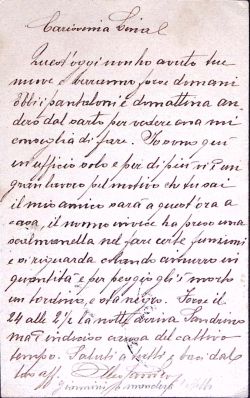 Carissima
Quest'oggi non ho avuto tue
nuove e verranno forse domani
Ebbi i pantaloni e domattina an
derò dal sarto per vedere cosa mi
consiglia di fare. Io sono qui
in ufficio solo e per di più vi è un
gran lavoro pel motivo che tu sai
il mio amico sarà a quest'ora a
casa, il nonno invece ha preso una
nel fare certe funzioni
e si riguarda chinino in
quantità e per peggio gli è morto
un tordino, e sta negro. Forse il
24 alle 2½ la notte arriva Sandrino
ma è indeciso a causa del cattivo
tempo. Saluti a tutti e baci dal
tuo aff.